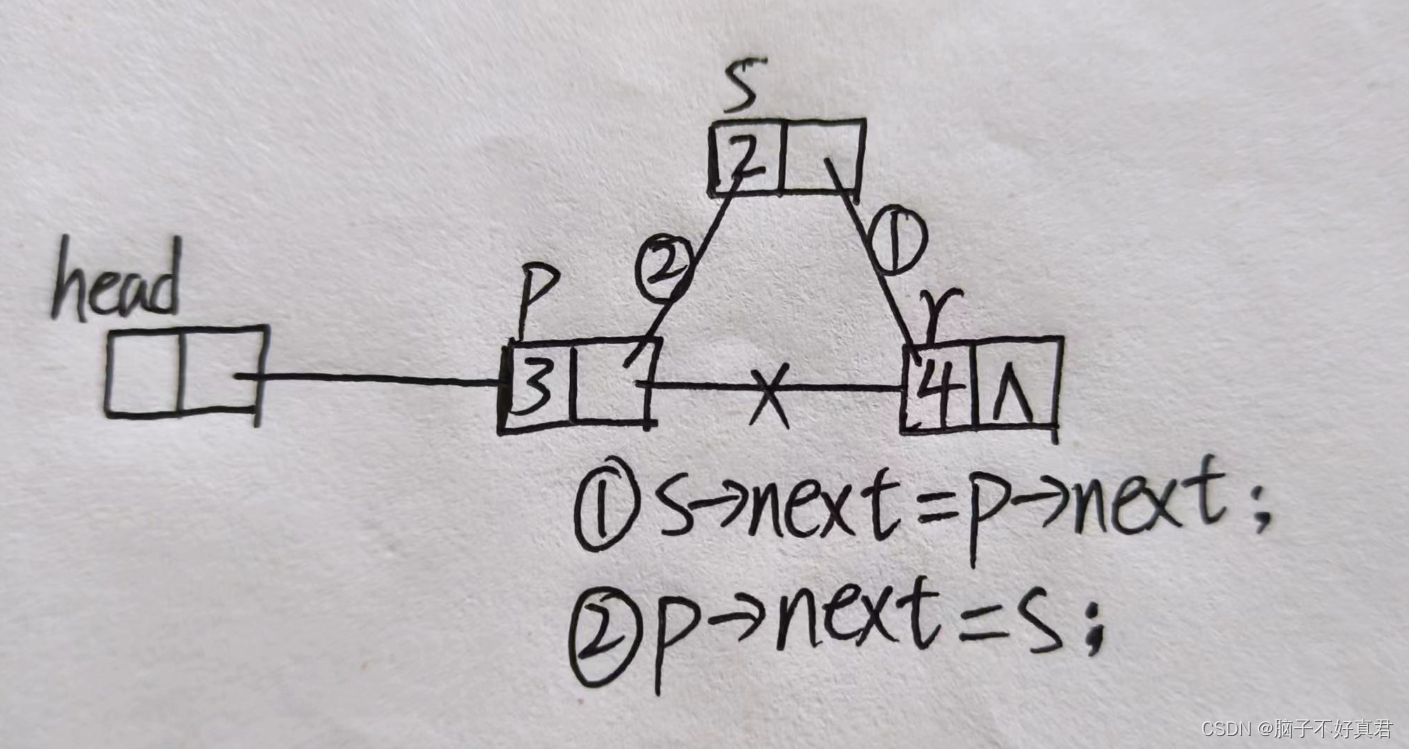 S
2
①
②
head
P
r
3
4 ∧
X
① s→next=p→next;
② p→next=s;
CSDN @脑子不好真君